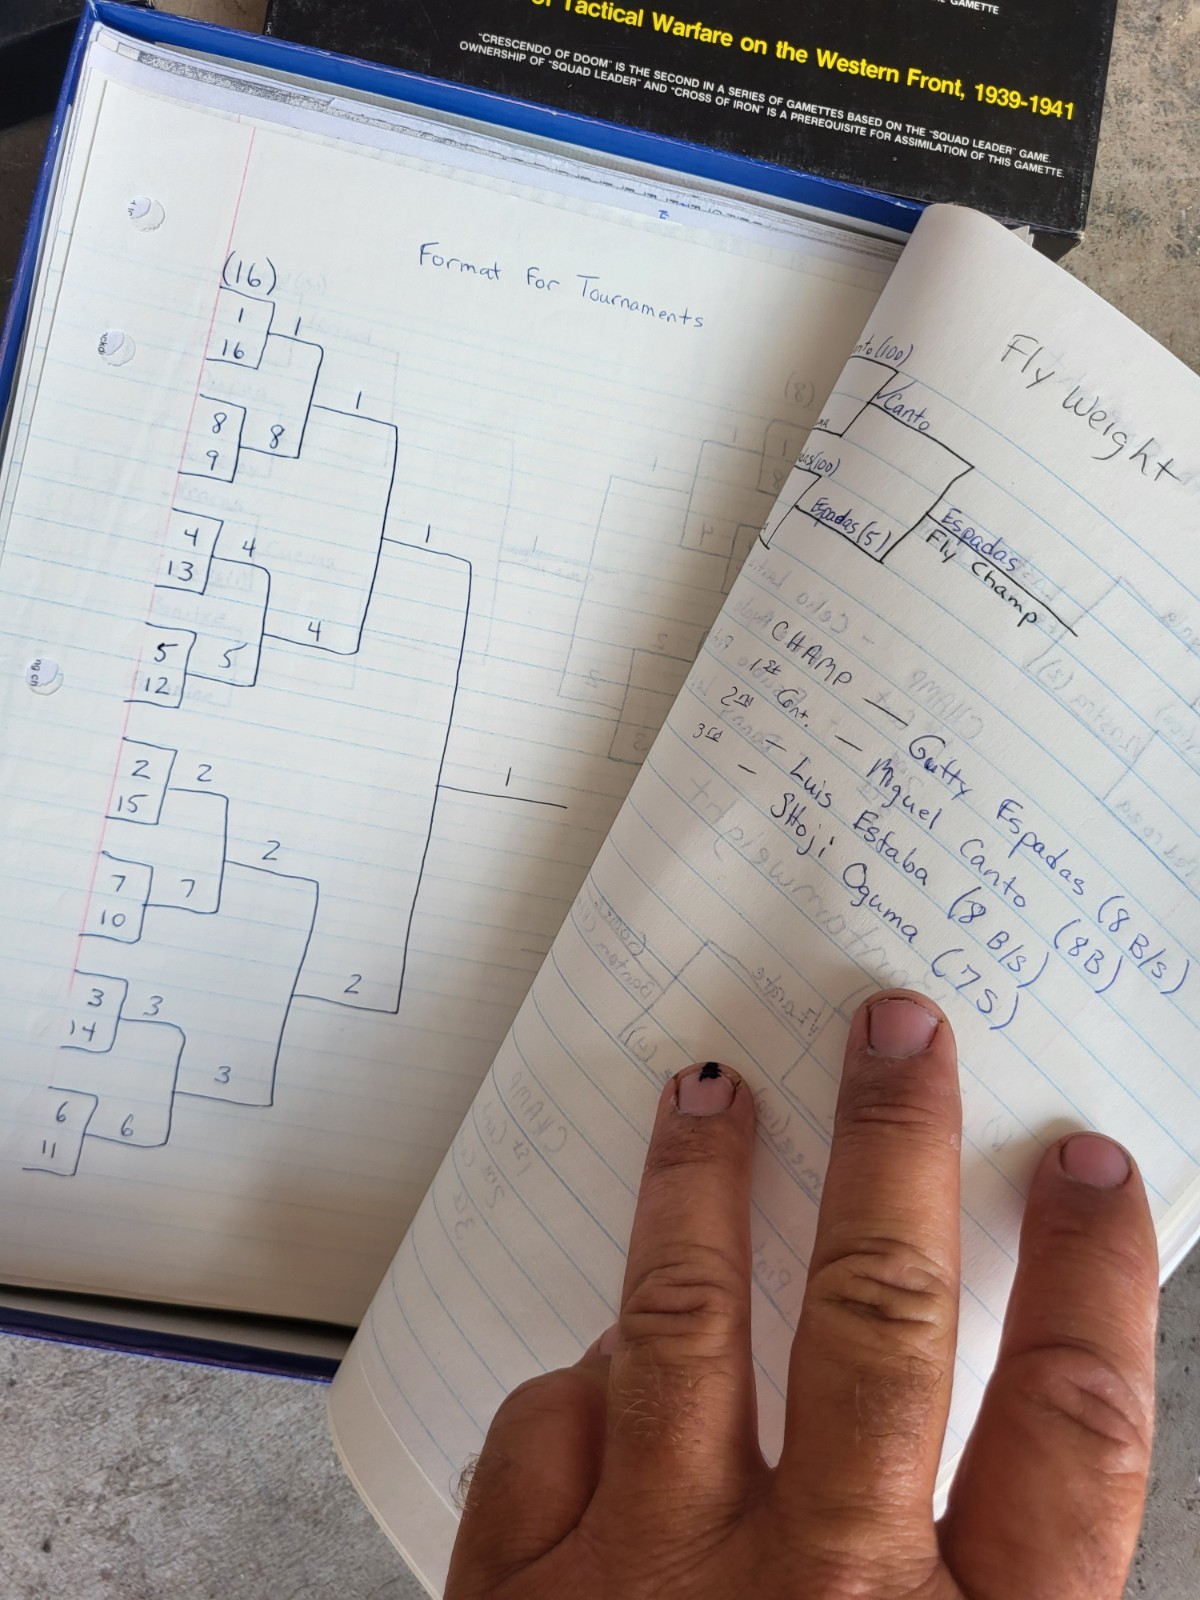 GAMETTE
of Tactical Warfare on the Western Front, 1939-1941
"CRESCENDO OF DOOM" IS THE SECOND IN A SERIES OF GAMETTES BASED ON THE "SQUAD LEADER" GAME.
OWNERSHIP OF "SQUAD LEADER" AND "CROSS OF IRON" IS A PREREQUISITE FOR ASSIMILATION OF THIS GAMETTE.
Format for Tournaments
(16)
1
1
16
1
8
8
9
1
4
4
13
4
5
5
12
1
2
2
15
2
7
7
10
2
3
3
14
3
6
6
11
Fly Weight
(100)
Canto
(100)
Espadas (5)
Espadas
Fly Champ
CHAMP — Gutty Espadas (8 B/S)
1st Cont. — Miguel Canto (8B)
2nd — Luis Estaba (8 B/S)
3rd — Shoji Oguma (7S)